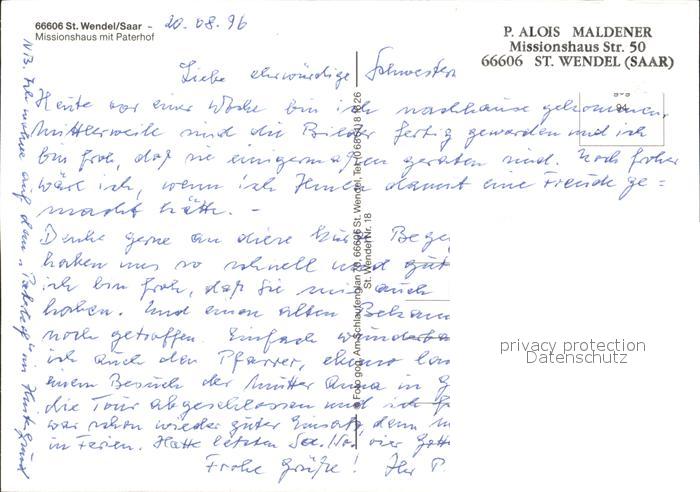 66606 St. Wendel/Saar -
Missionshaus mit Paterhof
20.08.96
P. ALOIS MALDENER
Missionshaus Str. 50
66606 ST. WENDEL (SAAR)
Liebe ehrwürdige Schwestern
Heute vor einer Woche bin ich nachhause gekommen.
Mittlerweile sind die Bilder fertig geworden und ich
bin froh, daß sie einigermaßen geraten sind. Noch froher
wäre ich, wenn ich Ihnen damit eine Freude ge=
macht hätte. -
Denke gerne an diese
haben uns so schnell und gut
ich bin froh, daß Sie mir auch
haben. Und einen alten
noch getroffen. Einfach
ich auch den Pfarrer,
einem Besuch der Mutter Anna in
die Tour abgeschlossen und ich
war schon wieder guter Einsatz, denn
in Ferien. Hatte letzten vier
Frohe Grüße! Ihr P.
NB. Ich wohne auf dem im
© Foto gool, Am Schlaufenglan 10, 66606 St. Wendel, Tel.
St. Wendel Nr. 18
94
privacy protection
Datenschutz